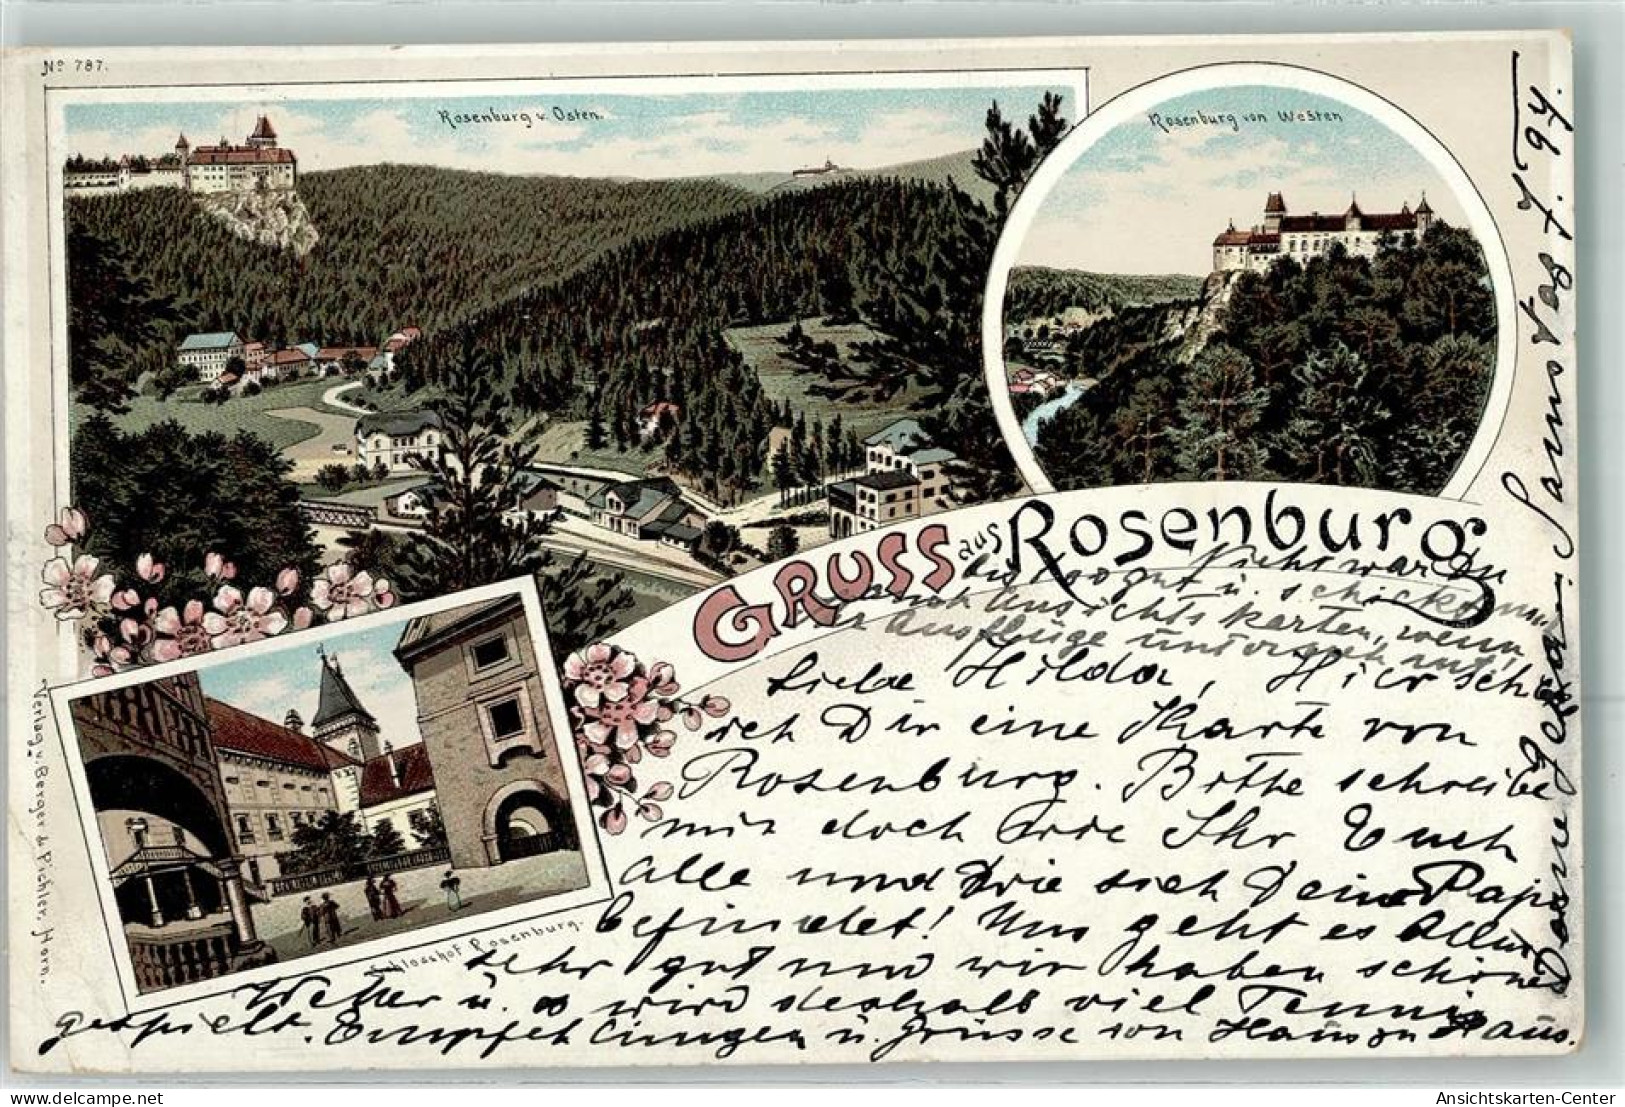 No 787.
Rosenburg v. Osten.
Rosenburg von Westen
GRUSS aus Rosenburg
Nicht war Du
bist so gut u. schickst mir
auch Ansichtskarten, wenn
Ihr Ausflüge unternehmt!
Liebe Hilda, Hier schicke
ich Dir eine Karte von
Rosenburg. Bitte schreibe
mir doch wie Ihr Euch
alle und wie sich Dein Papa
befindet! Uns geht es Allen
sehr gut und wir haben schönes
Wetter u. es wird deshalb viel Tennis
gespielt. Empfehlungen u. Grüsse von Haus zu Haus.
Deine
Samstag
Schlosshof Rosenburg.
Verlag v. Berger & Pichler, Horn.
Ansichtskarten-Center
https://www.delcampe.net